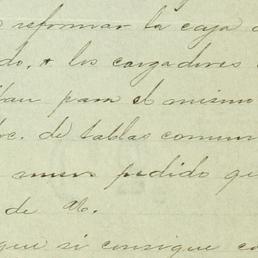 reformar la caja
do, a los cargadores
para el mismo
de tablas comun
nuevo pedido qu
de
que si consigue co